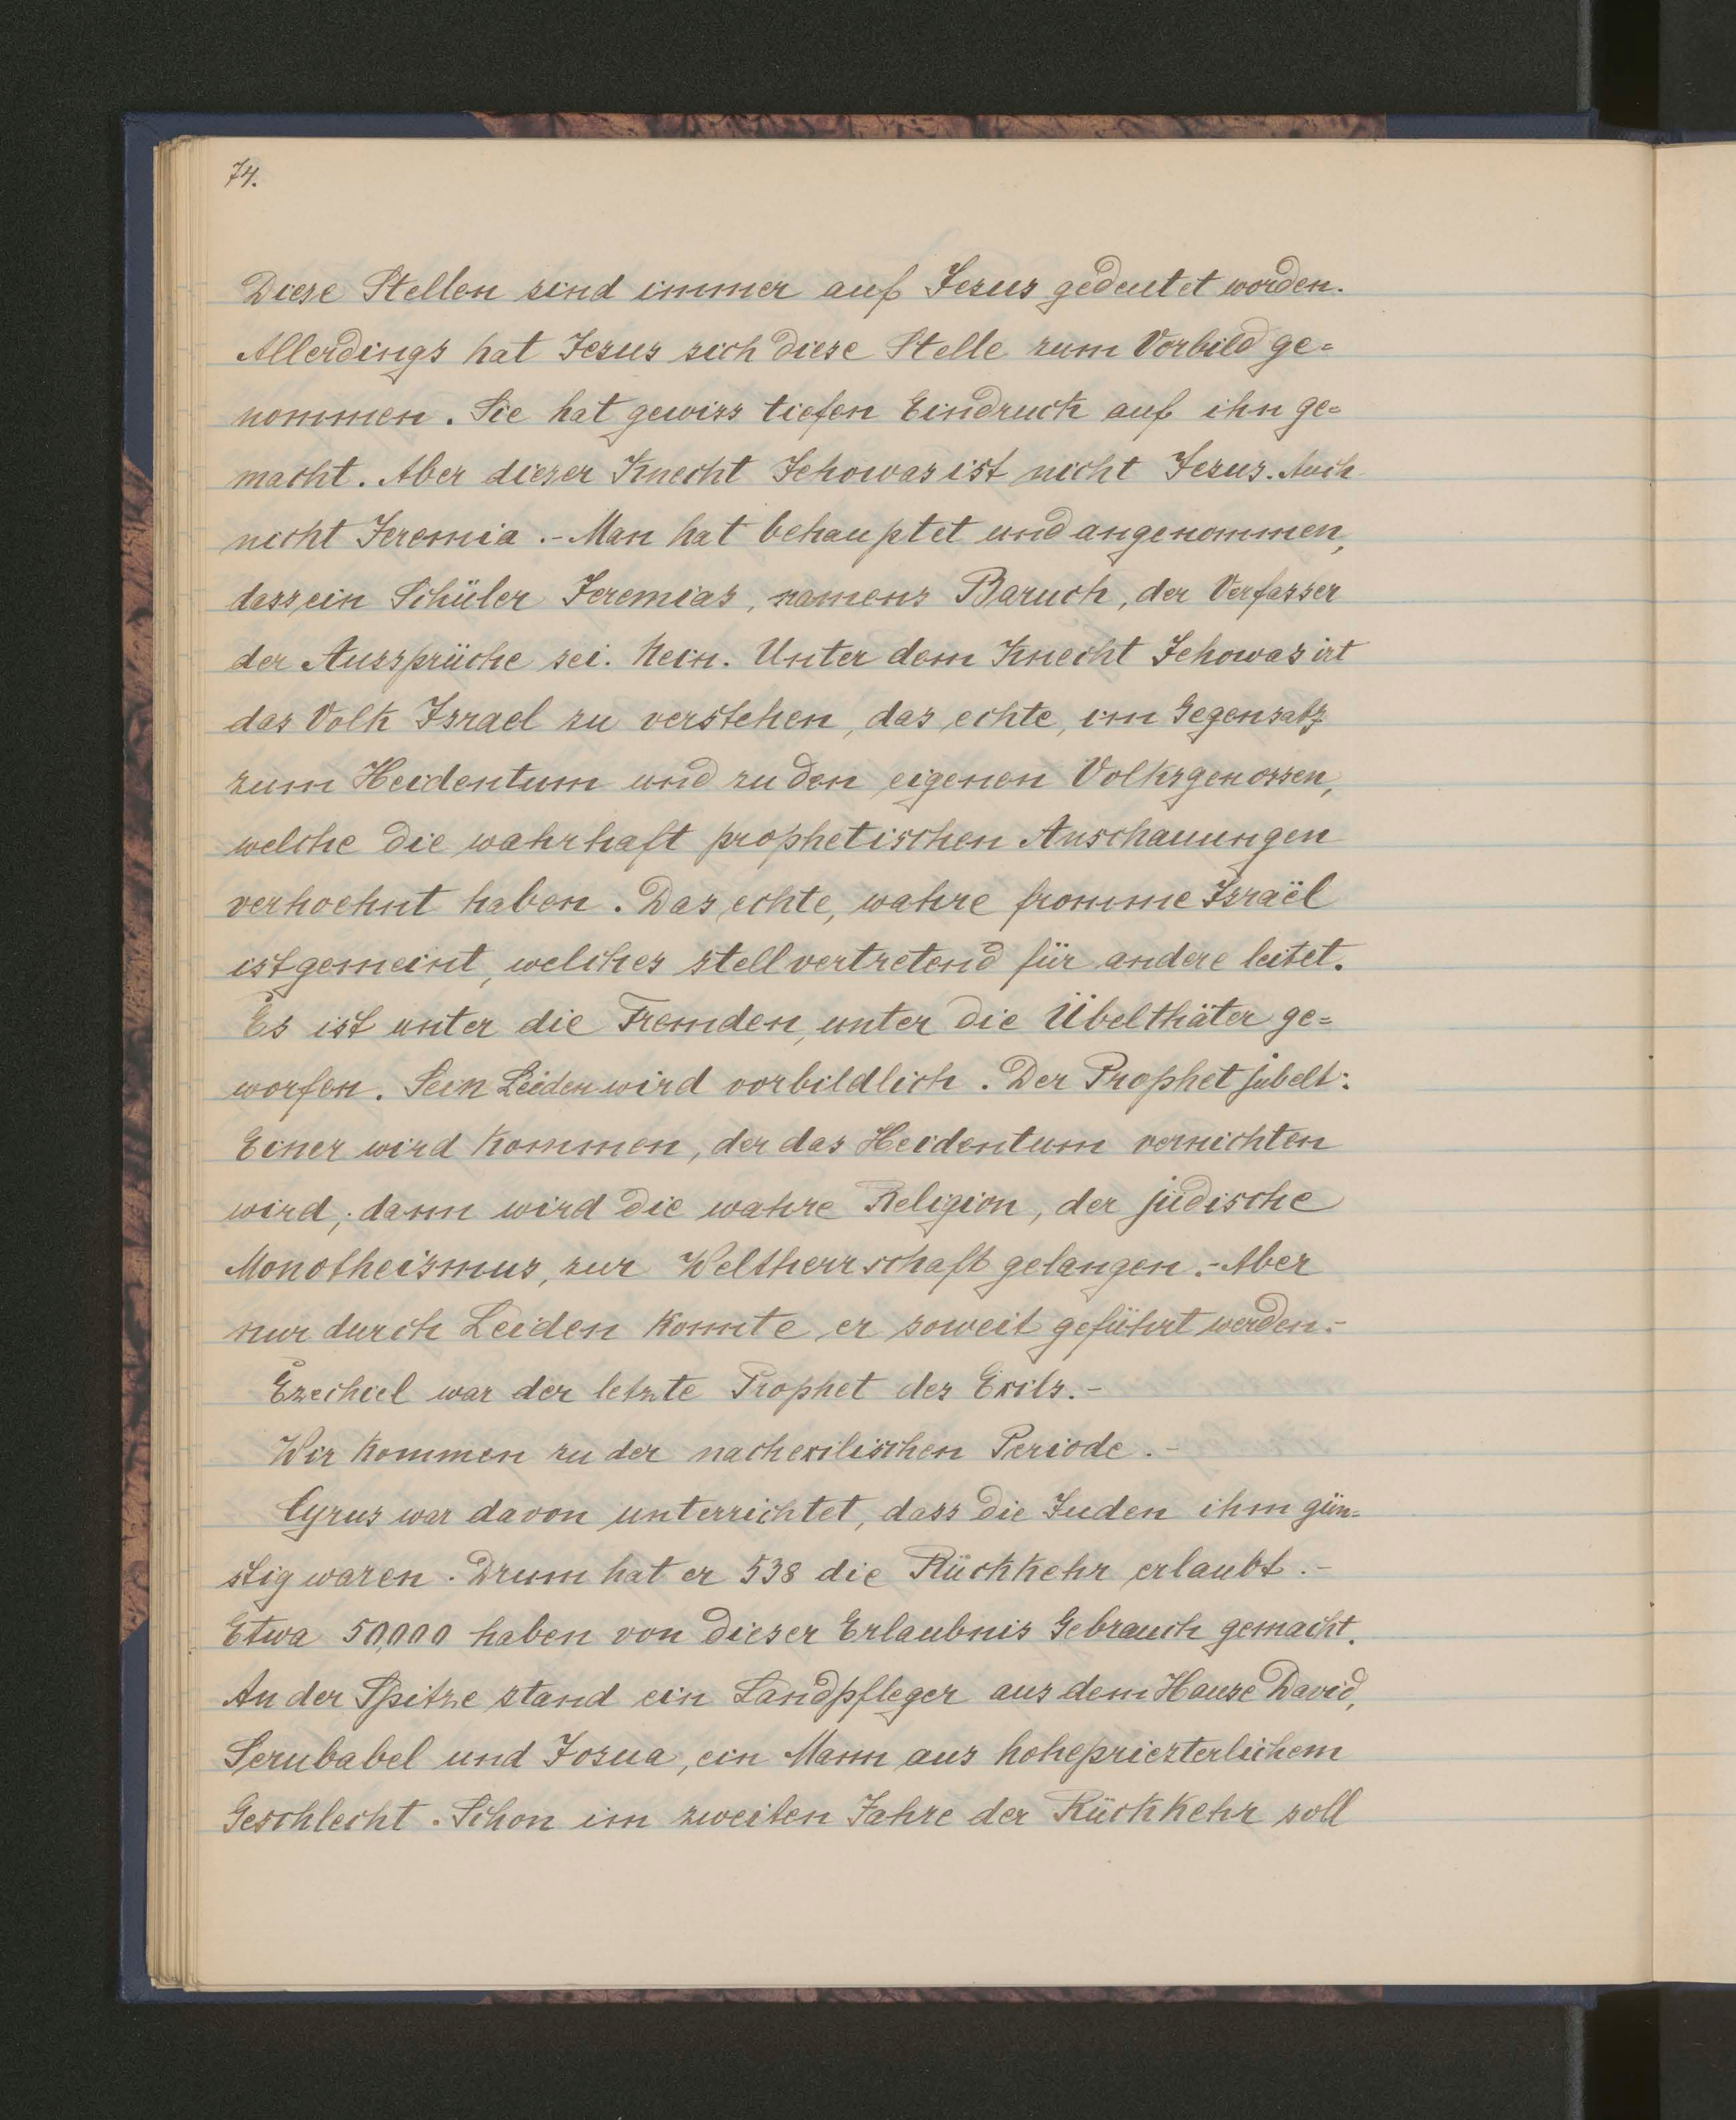 74.
Diese Stellen sind immer auf Jesus gedeutet worden.
Allerdings hat Jesus sich diese Stelle zum Vorbild ge=
nommen. Sie hat gewiss tiefen Eindruck auf ihn ge=
macht. Aber dieser Knecht Jehowas ist nicht Jesus. Auch
nicht Jeremia.- Man hat behauptet und angenommen,
dass ein Schüler Jeremias, namens Baruch, der Verfasser
der Aussprüche sei. Nein. Unter dem Knecht Jehowas ist
das Volk Israel zu verstehen, das echte, im Gegensatz
zum Heidentum und zu den eigenen Volksgenossen,
welche die wahrhaft prophetischen Anschauungen
verhoehnt haben. Das echte, wahre fromme Israël
ist gemeint, welches stellvertretend für andere leitet.
Es ist unter die Fremden, unter die Übelthäter ge=
worfen. Sein Leiden wird vorbildlich. Der Prophet jubelt:
Einer wird kommen, der das Heidentum vernichten
wird; dann wird die wahre Religion, der jüdische
Monotheismus, zur Weltherrschaft gelangen.- Aber
nur durch Leiden konnte er soweit geführt werden.-
Ezechiel war der letzte Prophet des Exils.-
Wir kommen zu der nachexilischen Periode.-
Cyrus war davon unterrichtet, dass die Juden ihm gün=
stig waren. Drum hat er 538 die Rückkehr erlaubt.-
Etwa 50,000 haben von dieser Erlaubnis Gebrauch gemacht.
An der Spitze stand ein Landpfleger aus dem Hause David,
Serubabel und Josua, ein Mann aus hohepriesterlichem
Geschlecht. Schon im zweiten Jahre der Rückkehr soll